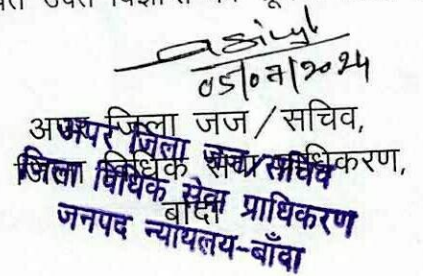 उक्त
05/07/2024
अपर जिला जज / सचिव,
जिला विधिक सेवा प्राधिकरण,
बांदा
अपर जिला जज/सचिव
जिला विधिक सेवा प्राधिकरण
जनपद न्यायलय-बाँदा